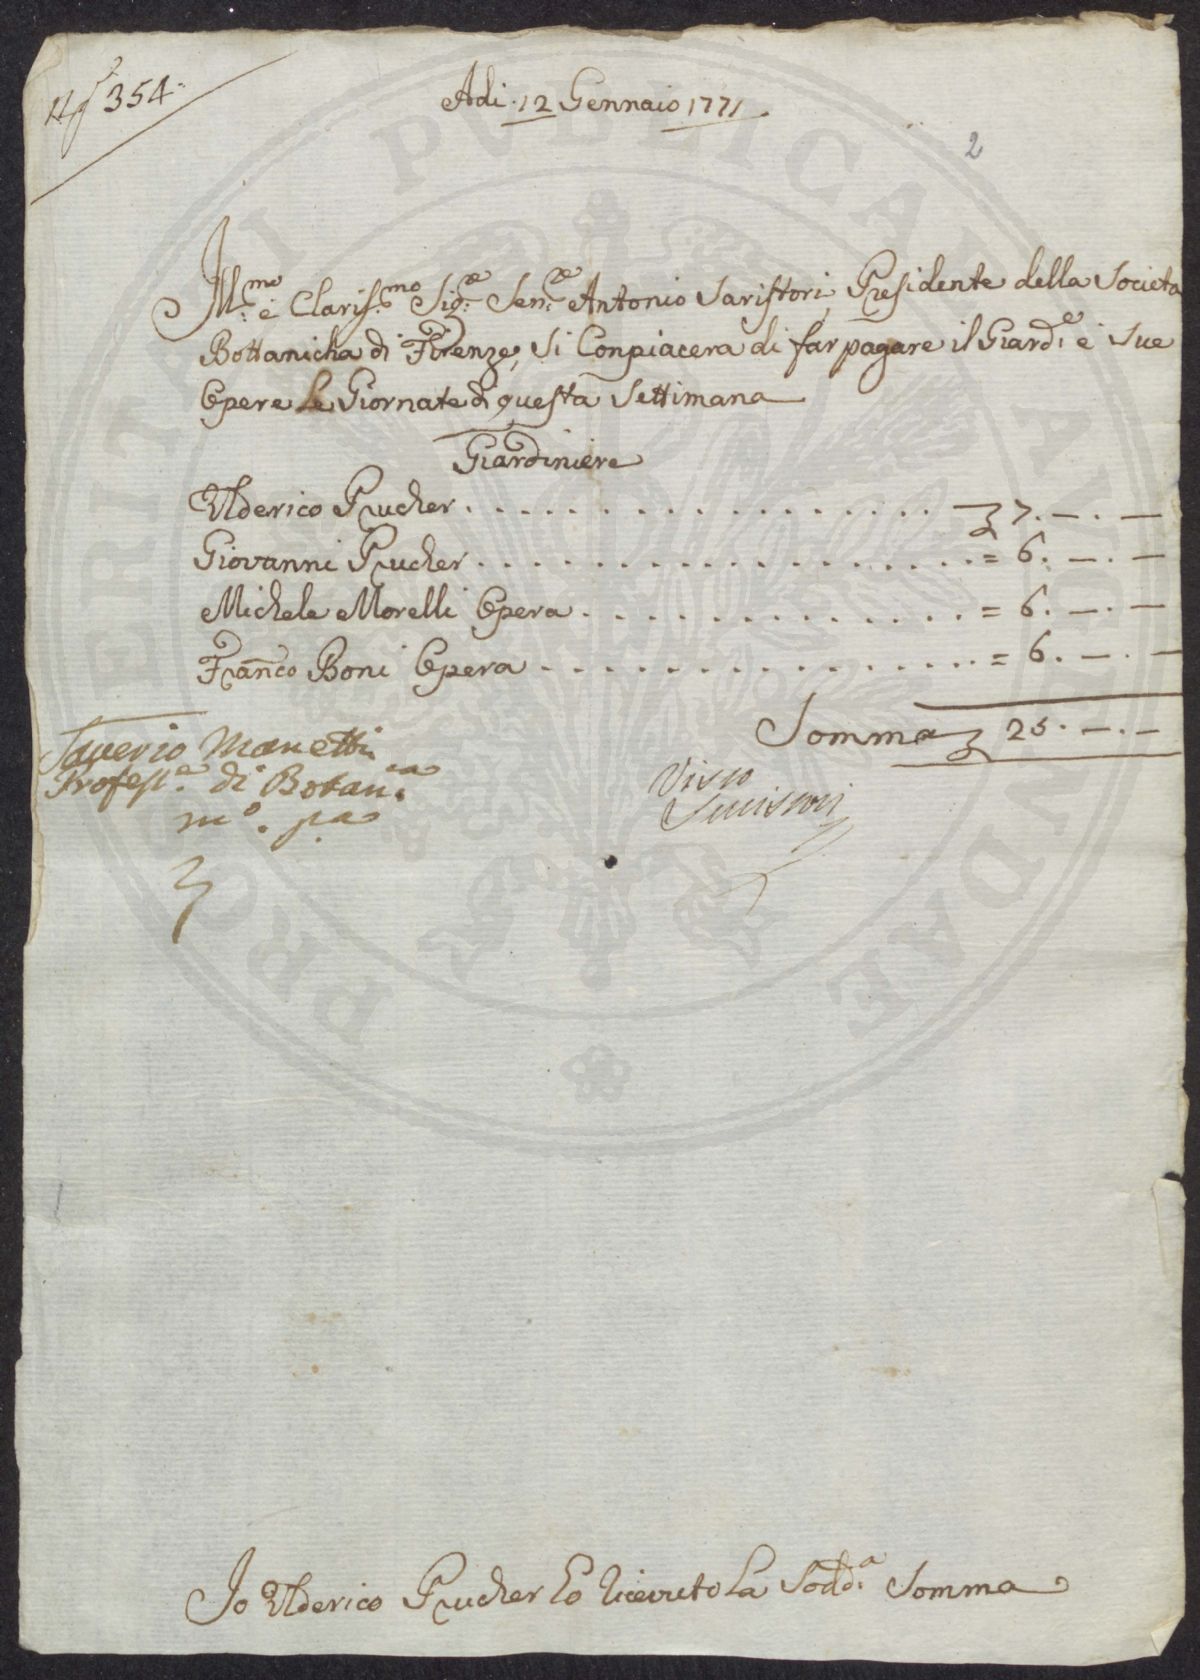 N° 354
Adi 12 Gennaio 1771
2
Ill.mo e Claris.mo Sig.re Sen.re Antonio Saristori Presidente della Societa
Bottanicha di Firenze, Si Conpiacera di far pagare il Giard.e e Sue
Opere Le Giornate di questa Settimana
Giardiniere
Ulderico Prucher . . . . . . . . . . . . . . . . . . 7. — . —
Giovanni Prucher . . . . . . . . . . . . . . . . . . = 6. — . —
Michele Morelli Opera . . . . . . . . . . . . . . = 6. — . —
Franco Boni Opera . . . . . . . . . . . . . . . . = 6. — . —
Somma 25. — . —
Saverio Manetti
Profess.e di Botan.ca
m.o p.a
Visto
Serristori
Io Ulderico Prucher Ho Riceuto La Sodd.a Somma
PROSPERITATI PUBLICAE AUGENDAE